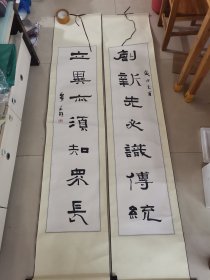 創新先必識傳統
立異亦須知眾長